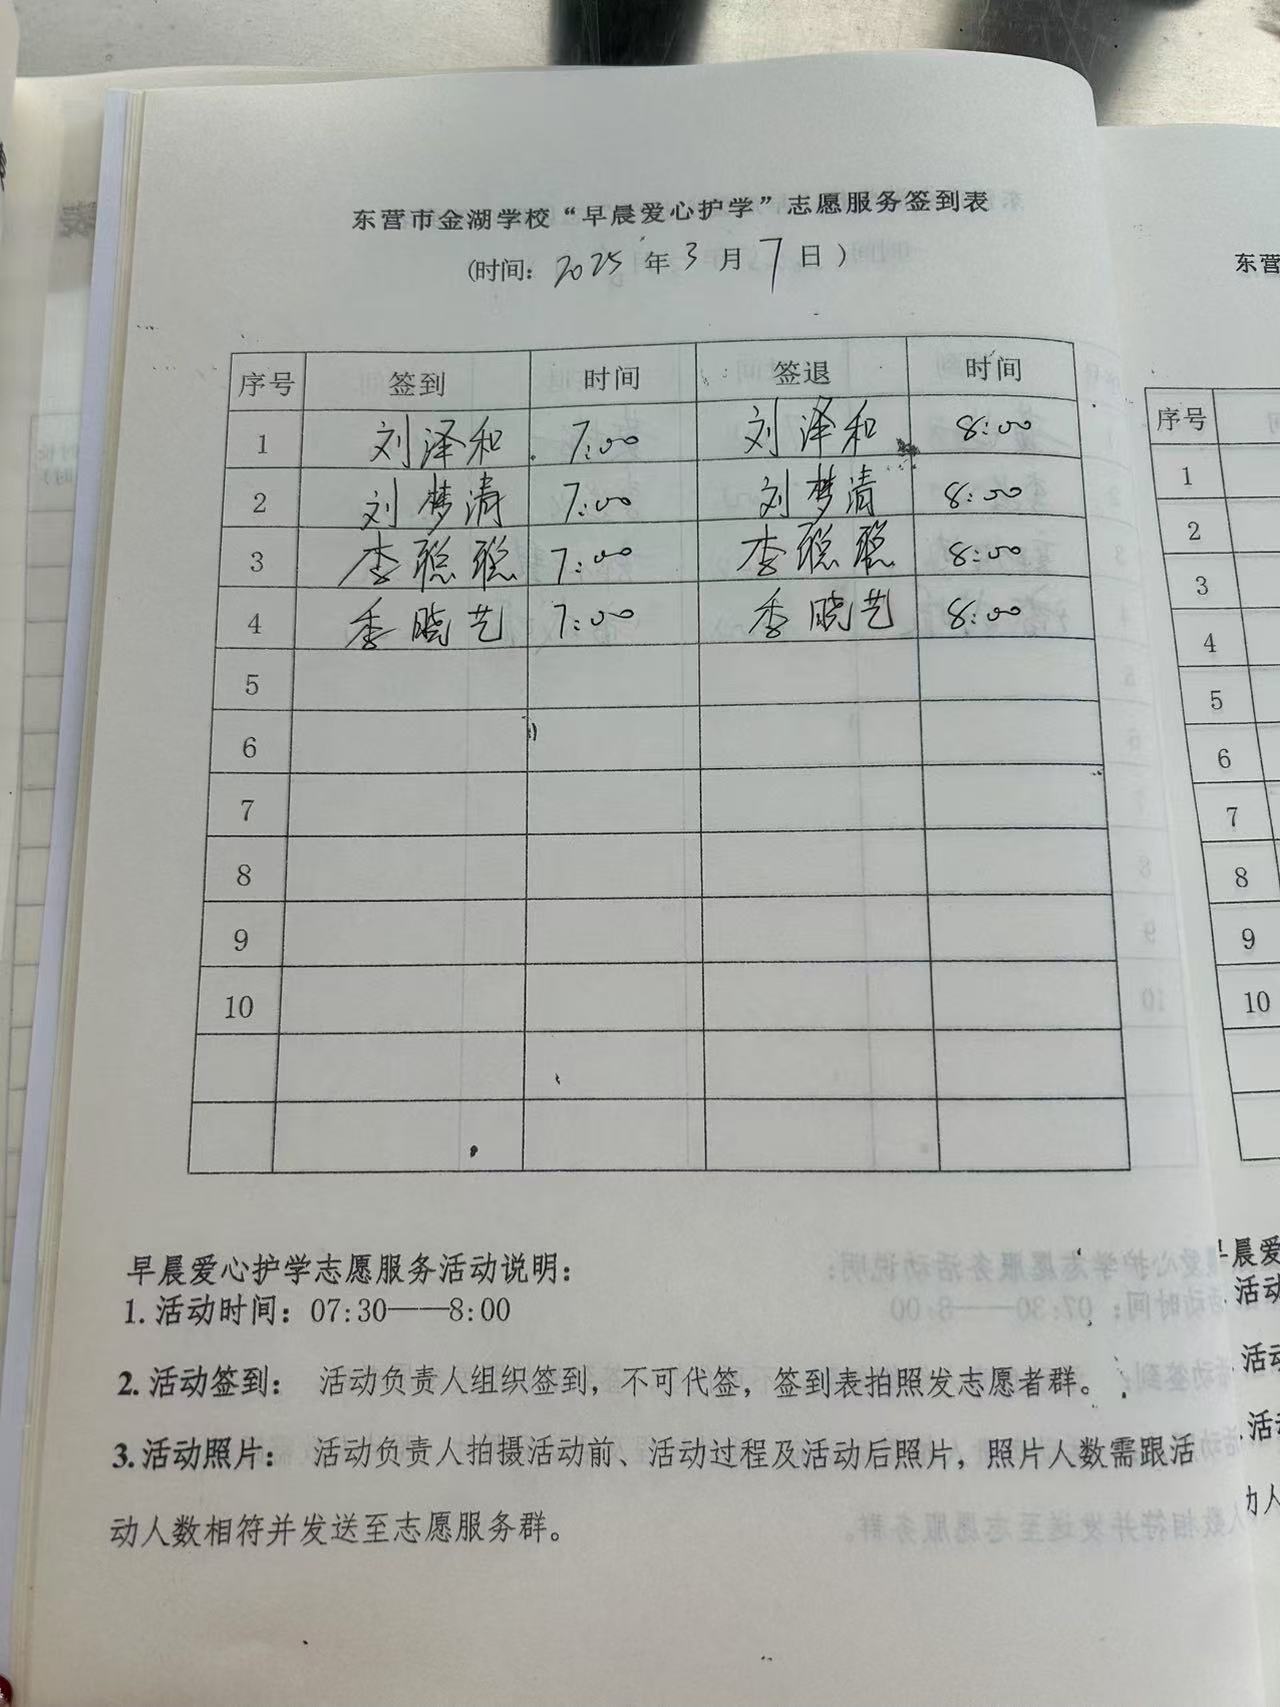 东营市金湖学校“早晨爱心护学”志愿服务签到表
(时间：2025年3月7日)
序号 签到 时间 签退 时间
1 刘泽和 7:00 刘泽和 8:00
2 刘梦清 7:00 刘梦清 8:00
3 李聪聪 7:00 李聪聪 8:00
4 季晓艺 7:00 季晓艺 8:00
5
6
7
8
9
10
早晨爱心护学志愿服务活动说明：
1.活动时间：07:30——8:00
2.活动签到： 活动负责人组织签到，不可代签，签到表拍照发志愿者群。
3.活动照片： 活动负责人拍摄活动前、活动过程及活动后照片，照片人数需跟活
动人数相符并发送至志愿服务群。
东营
序号
1
2
3
4
5
6
7
8
9
10
晨爱
活动
活动
活动
动人